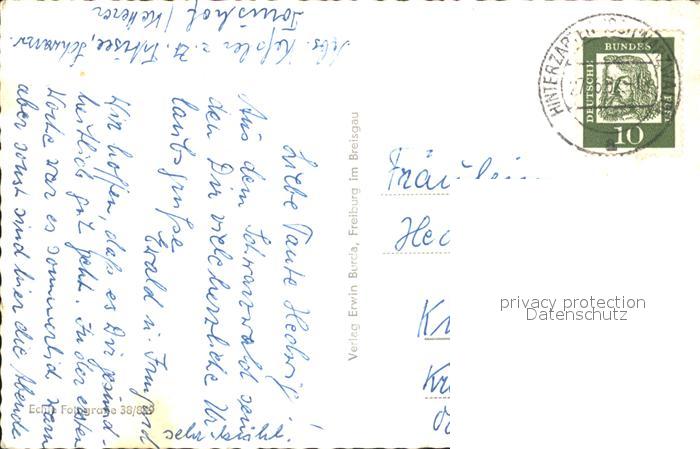 Liebe Tante Hedwig!
Aus dem Schwarzwald senden
Dir viele herzliche Ur-
laubsgrüße
Ewald u. Irmgard
Wir hoffen, daß es Dir gesund-
heitlich gut geht. In der ersten
Woche war es sommerlich warm
aber sonst sind hier die Abende
sehr kühl.
Titisee, Schwarzw.
Verlag Erwin Burda, Freiburg im Breisgau
Echte Fotografie 38/889
HINTERZARTEN (SCHWARZWALD)
a
DEUTSCHE BUNDES
10
Fräulein
Hed
privacy protection
Datenschutz